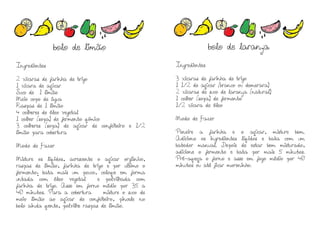 bolo de limão
Ingredientes
2 xícaras de farinha de trigo
1 xícara de açúcar
Suco de 1 limão
Meio copo de água
Raspas de 1 limão
4 colheres de óleo vegetal
1 colher (sopa) de fermento químico
3 colheres (sopa) de açúcar de confeiteiro e 1/2
limão para cobertura
Modo de Fazer
Misture os líquidos, acrescente o açúcar orgânico,
raspas de limão, farinha de trigo e por último o
fermento, bata mais um pouco, coloque em forma
untada com óleo vegetal e polvilhada com
farinha de trigo. Asse em forno médio por 35 a
40 minutos. Para a cobertura misture o suco de
meio limão ao açúcar de confeiteiro, pincele no
bolo ainda quente, polvilhe raspas de limão.
bolo de laranja
Ingredientes
3 xícaras de farinha de trigo
1 1/2 de açúcar (branco ou demerara)
2 xícaras de suco de laranja (natural)
1 colher (sopa) de fermento
1/2 xícara de óleo
Modo de Fazer
Peneire a farinha e o açúcar, misture bem.
Adicione os ingredientes líquidos e bata com um
batedor manual. Depois de estar bem misturado,
adicione o fermento e bata por mais 5 minutos.
Pré-aqueça o forno e asse em fogo médio por 40
minutos ou até ficar moreninho.